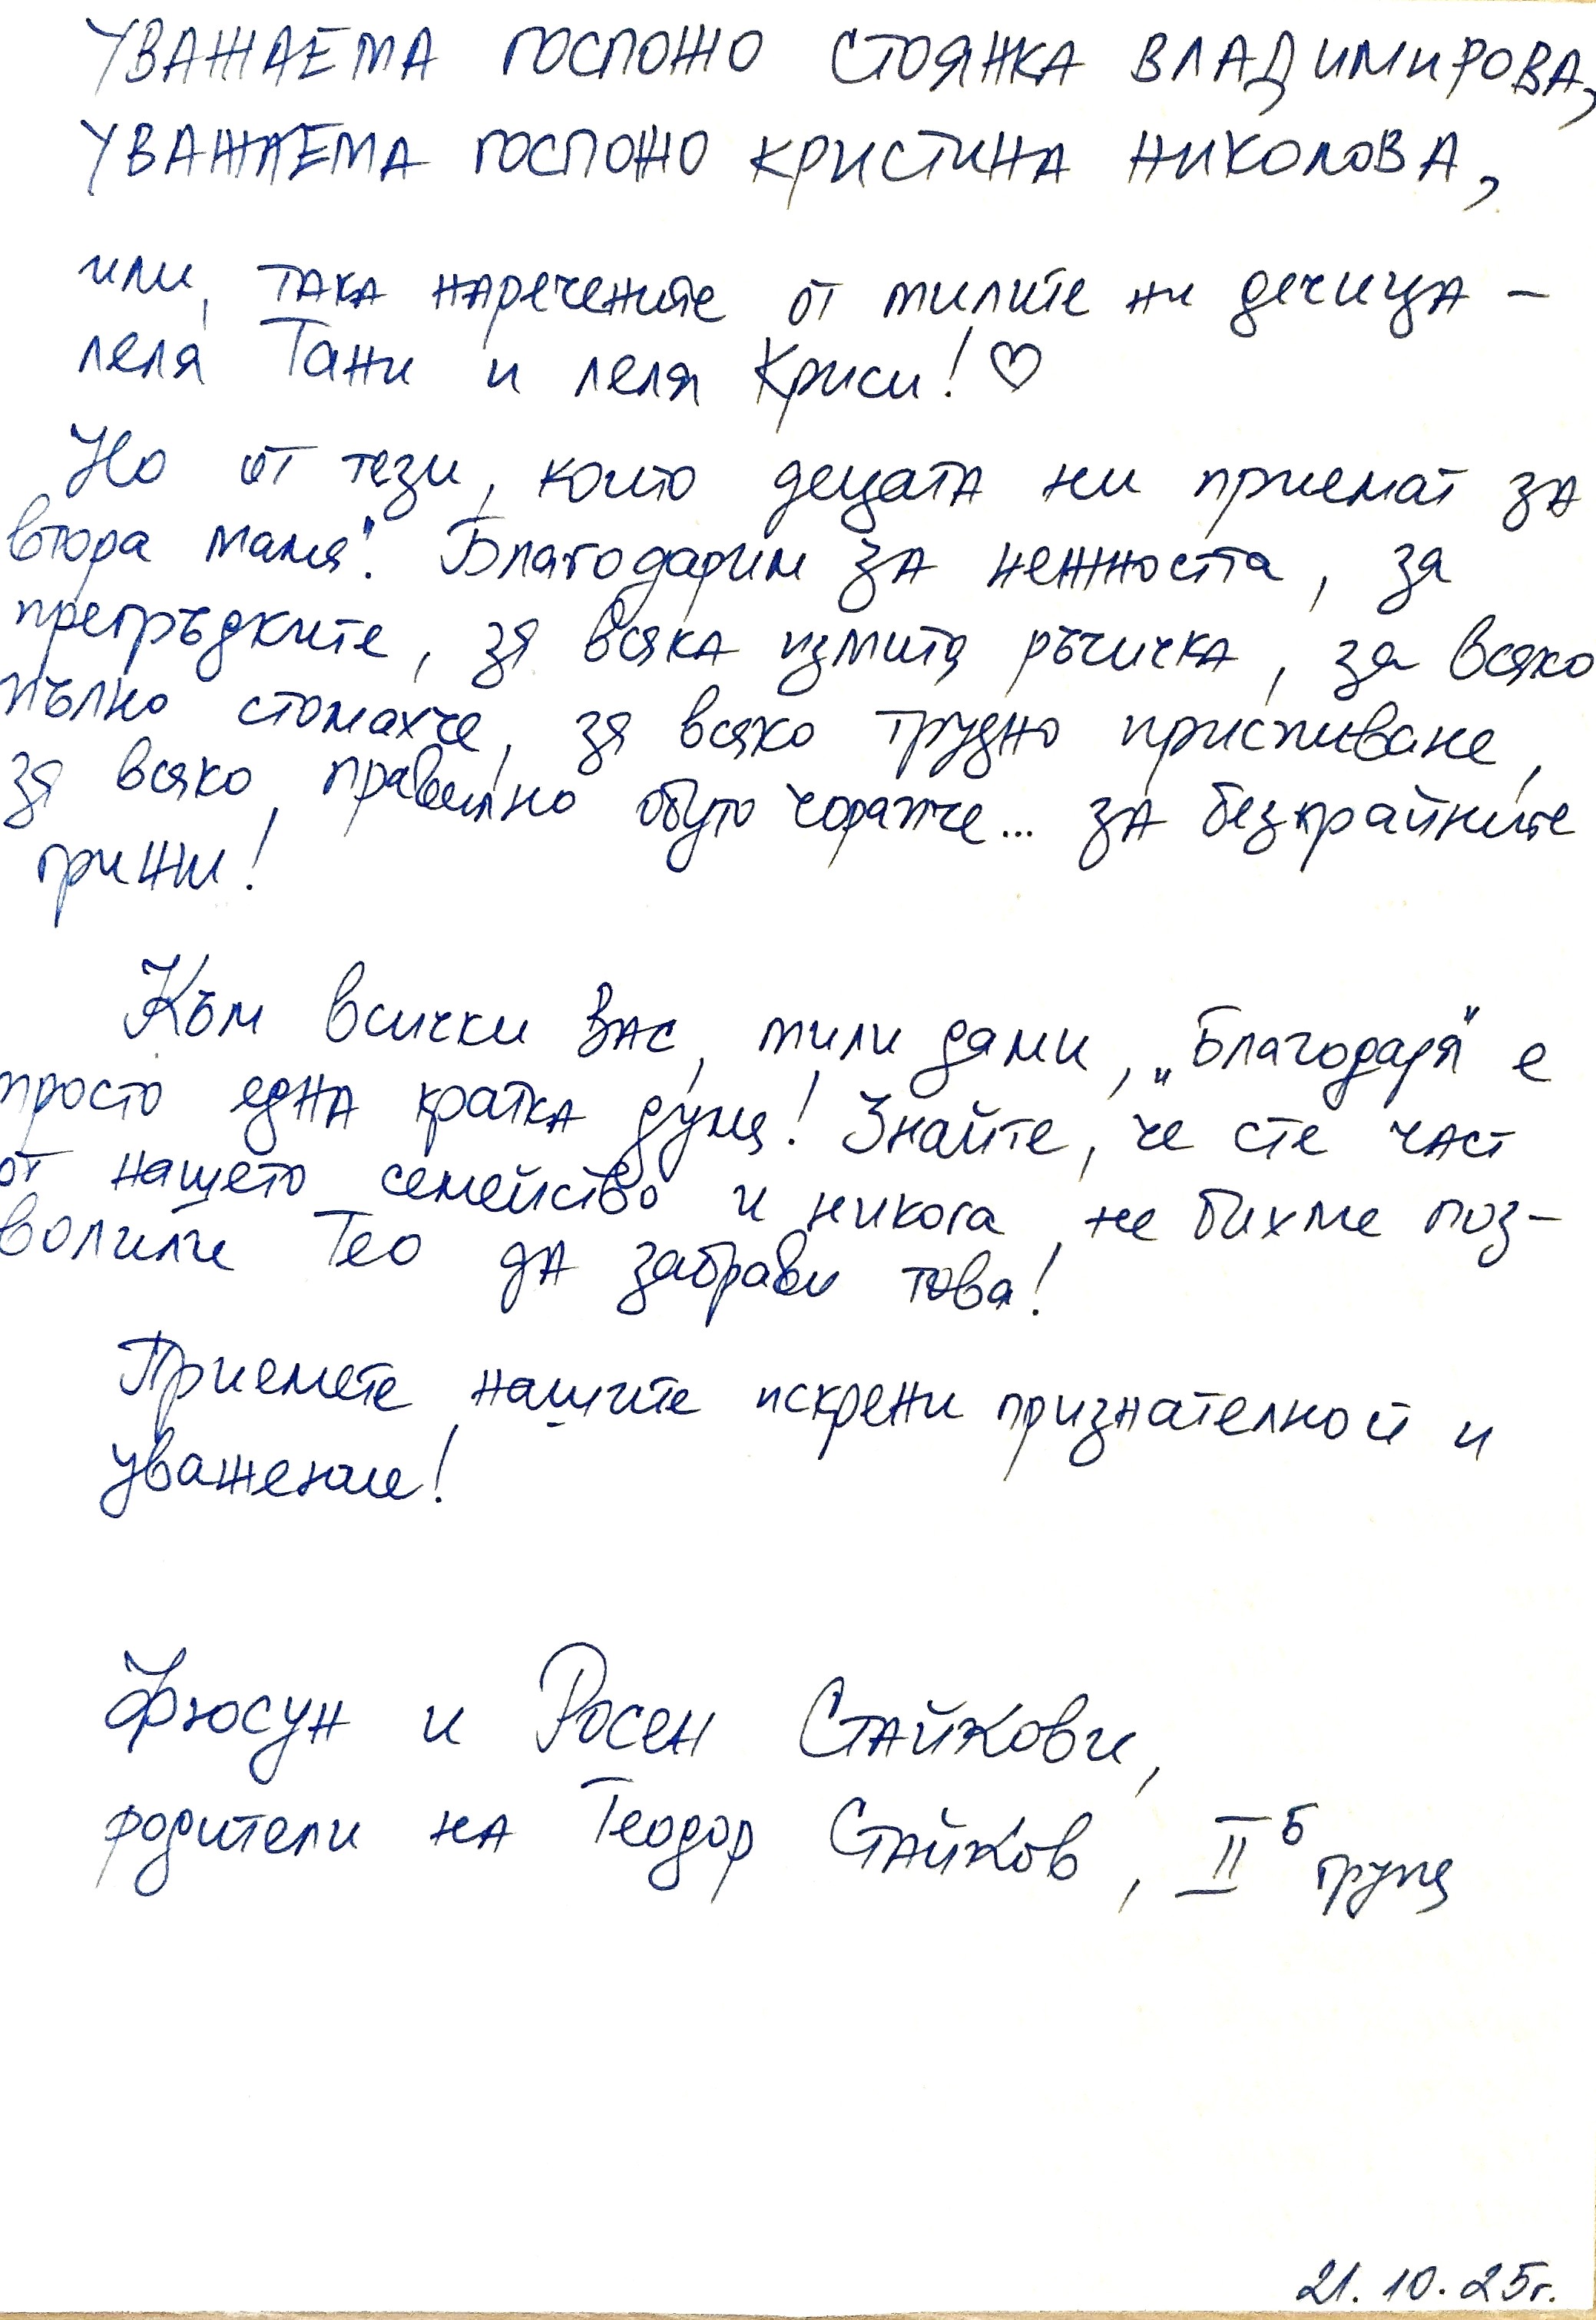 УВАЖАЕМА ГОСПОЖО СТОЯНКА ВЛАДИМИРОВА,
УВАЖАЕМА ГОСПОЖО КРИСТИНА НИКОЛОВА,
или, така наречените от милите ни дечица –
леля Тани и леля Криси! ♡
Но от тези, които децата ни приемат за
втора мама". Благодарим за нежността, за
прегръдките, за всяка измита ръчичка, за всяко
пълно стомахче, за всяко трудно приспиване,
за всяко, правилно обуто чорапче... за безкрайните
грижи!
Към всички Вас, мили дами, „Благодаря" е
просто една кратка дума! Знайте, че сте част
от нашето семейство и никога не бихме поз-
волили Тео да забрави това!
Приемете нашите искрени признателност и
уважение!
Фюсун и Росен Стайкови,
родители на Теодор Стайков, II Б група
21.10.25г.